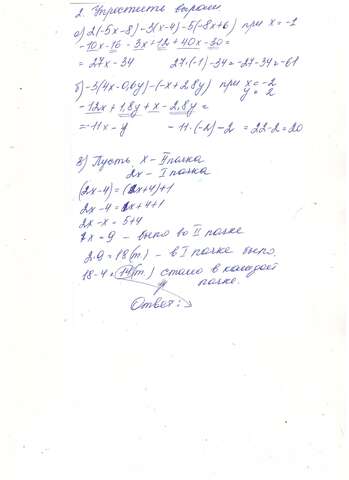 2. Упростить выраж
а) 2(-5x-8)-3(x-4)-5(-8x+6) при x=-1
-10x-16-3x+12+40x-30=
=27x-34 27·(-1)-34=-27-34=-61
б) -3(4x-0,6y)-(-x+2,8y) при x=-2
y=2
-12x+1,8y+x-2,8y=
=-11x-y -11·(-2)-2=22-2=20
3) Пусть x-II полка
2x-I полка
(2x-4)=(x+4)+1
2x-4=x+4+1
2x-x=5+4
x=9 - было во II полке
2·9=18(т.) - в I полке было.
18-4=14(т.) стало в каждой
полке.
Ответ: